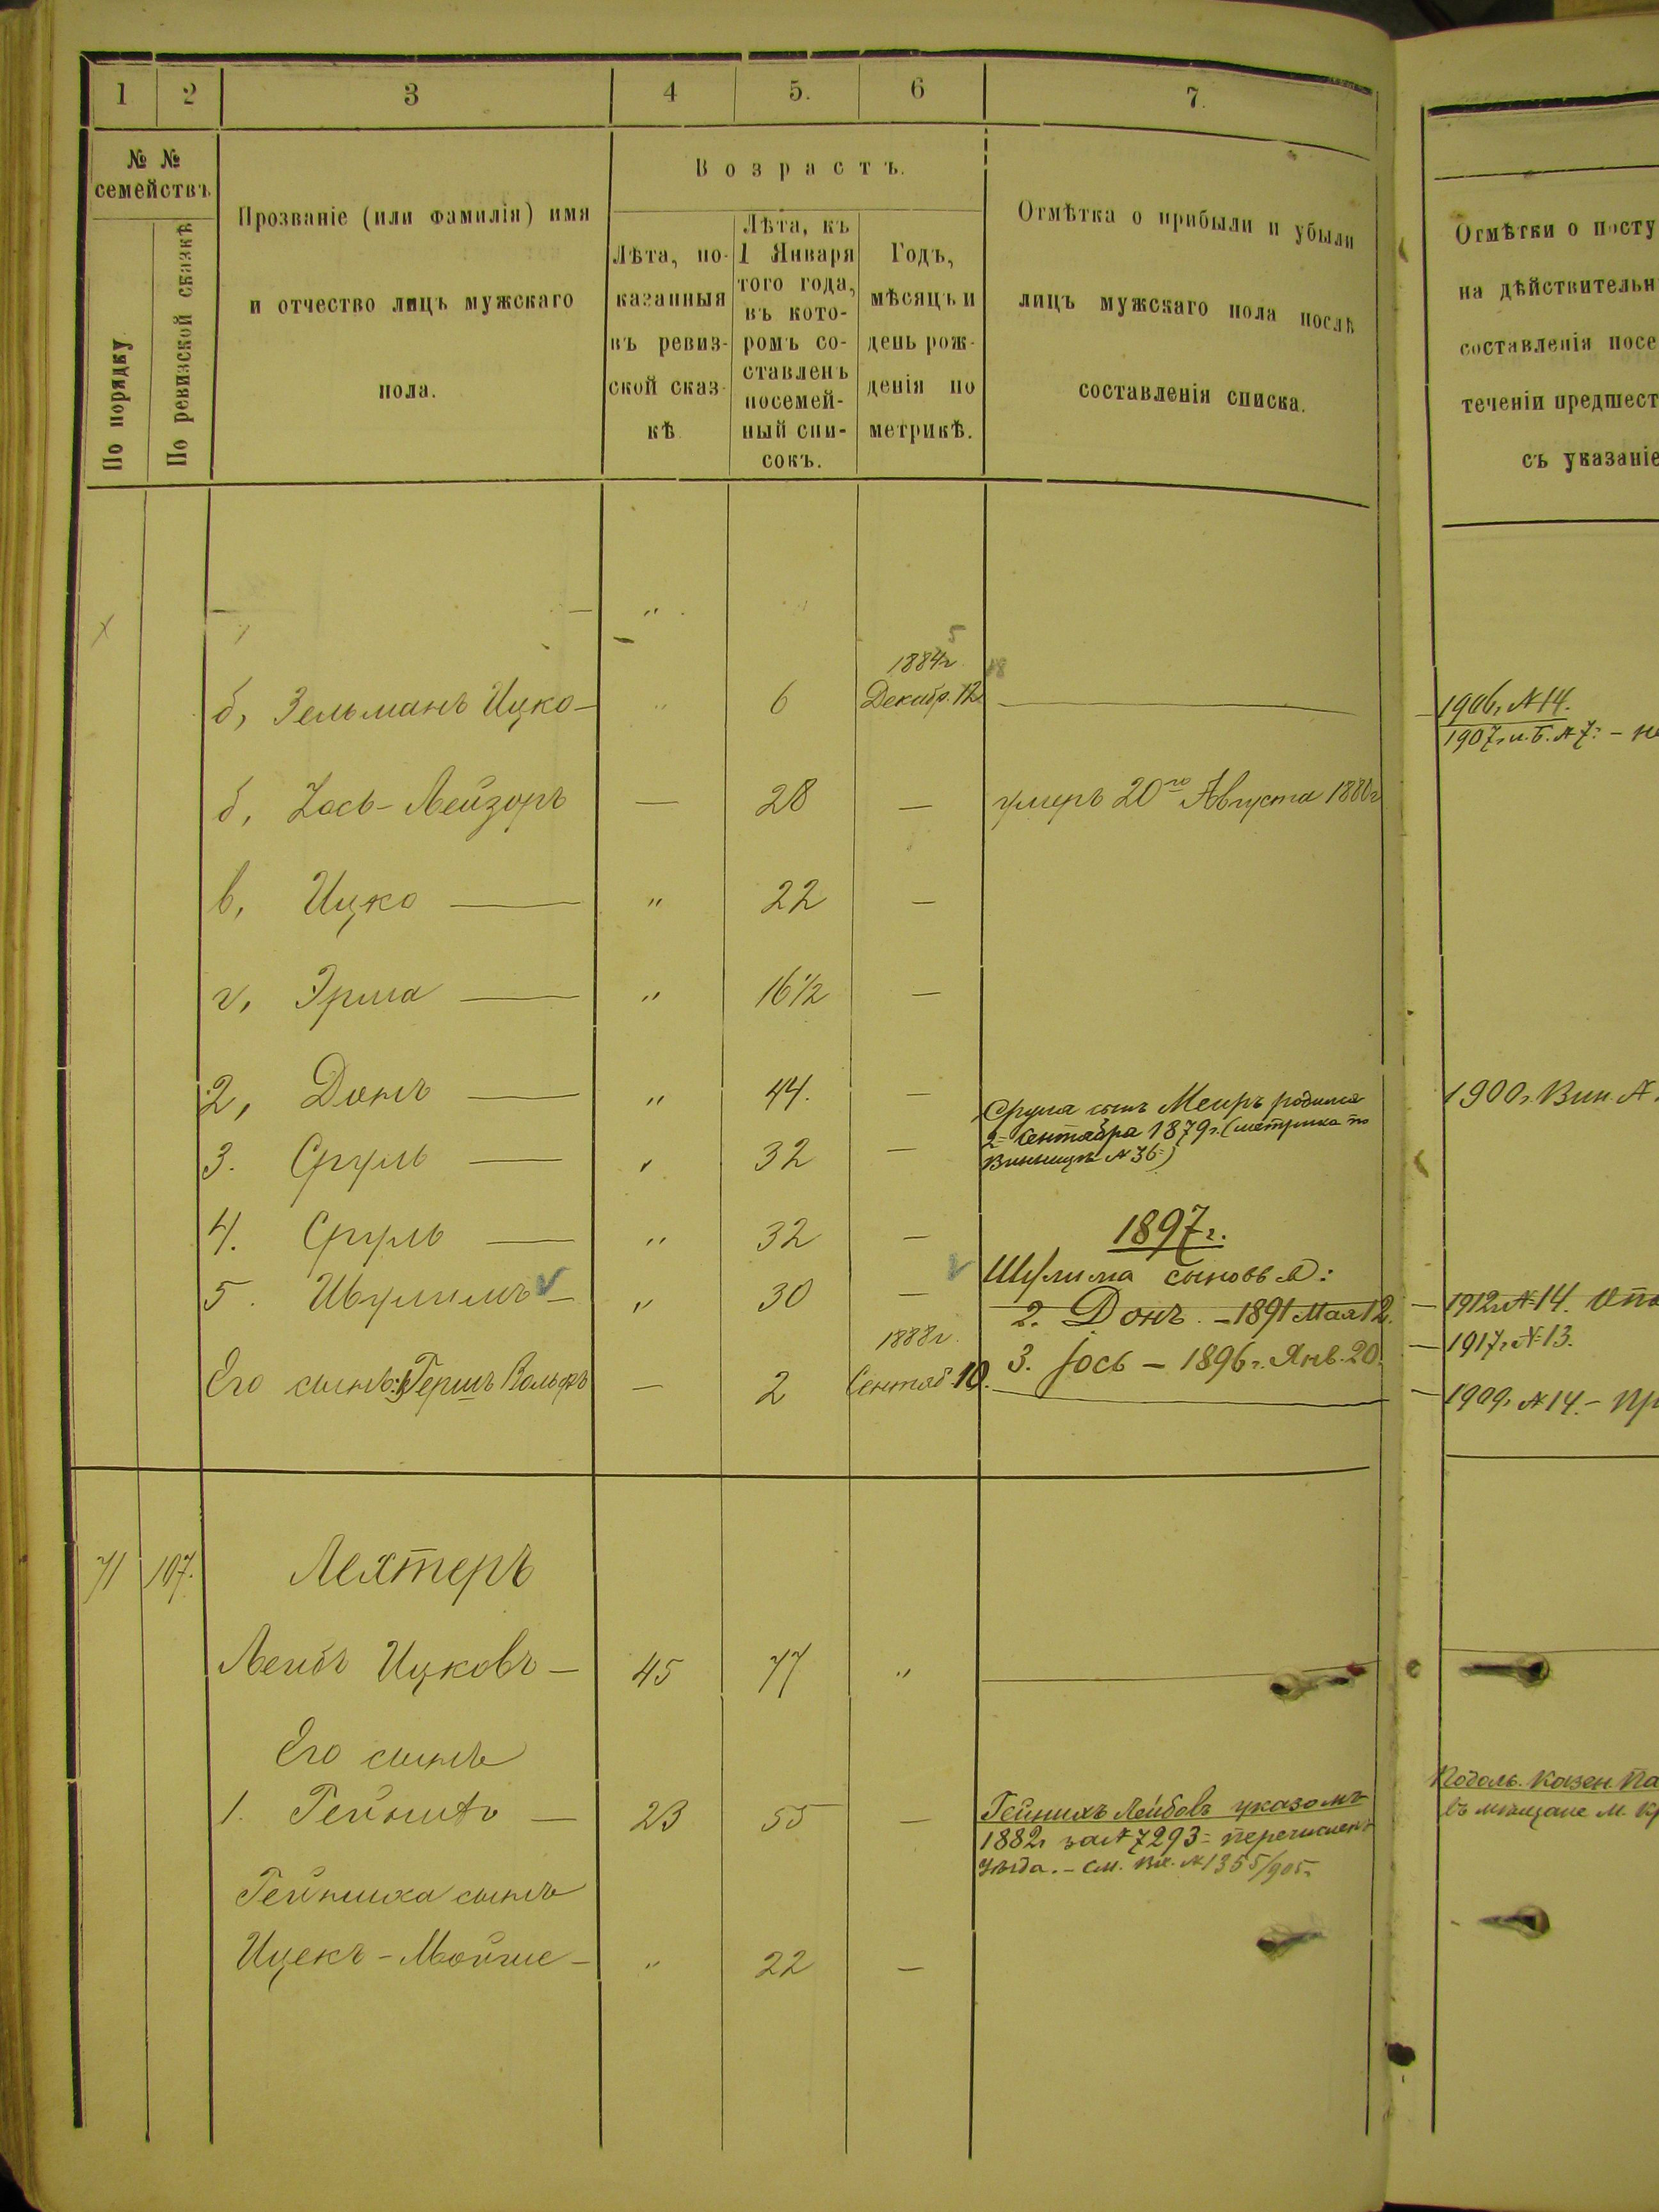 1 2 3 4 5. 6 7.
№ №
семействъ
По порядку
По ревизской сказкѣ
Прозваніе (или фамилія) имя
и отчество лицъ мужскаго
пола.
Возрастъ.
Лѣта, по-
казанныя
въ ревиз-
ской сказ-
кѣ
Лѣта, къ
1 Января
того года,
въ кото-
ромъ со-
ставленъ
посемей-
ный спи-
сокъ.
Годъ,
мѣсяцъ и
день рож-
денія по
метрикѣ.
Отмѣтка о прибыли и убыли
лицъ мужскаго пола послѣ
составленія списка.
Отмѣтки о посту
на дѣйствительн
составленія посе
теченіи предшест
съ указаніе
1884г
5
б, Зельманъ Ицко — " 6 Декабр. 12 —
1906г №14.
1907г. и. Б. № 7. – не
б, Іось-Лейзоръ — 28 — умеръ 20го Августа 1880г
в, Ицко — " 22 —
г, Эрша — " 16 1/2 —
2, Донъ — " 44. —
1900г. Вин. №
Сруля сынъ Меиръ родился
2 Сентября 1879г. (метрика по
Винницѣ № 36)
3. Сруль — " 32 —
4. Сруль — " 32 —
1897г.
Шулима сыновья:
5. Шулимъ — " 30 —
2. Донъ. – 1891 Мая 12.
— 1912г №14.
3. Іось – 1896г. Янв. 20.
— 1917г. №13.
1888г.
Его сынъ: 1 Гершъ Вольфъ — 2 Сентяб. 10.
— 1909г №14. – Пр
71 107. Лехтеръ
Лейбъ Ицковъ — 45 77 "
Его сынъ
1. Гейнихъ — 23 55 —
Гейнихъ Лейбовъ указомъ
1882г за № 7293 перечисленъ
уѣзда. – См. вх. № 1355/905г.
Подоль. Казен. Па
въ мѣщане м. Кр
Гейниха сынъ
Ицекъ-Мойше — " 22 —